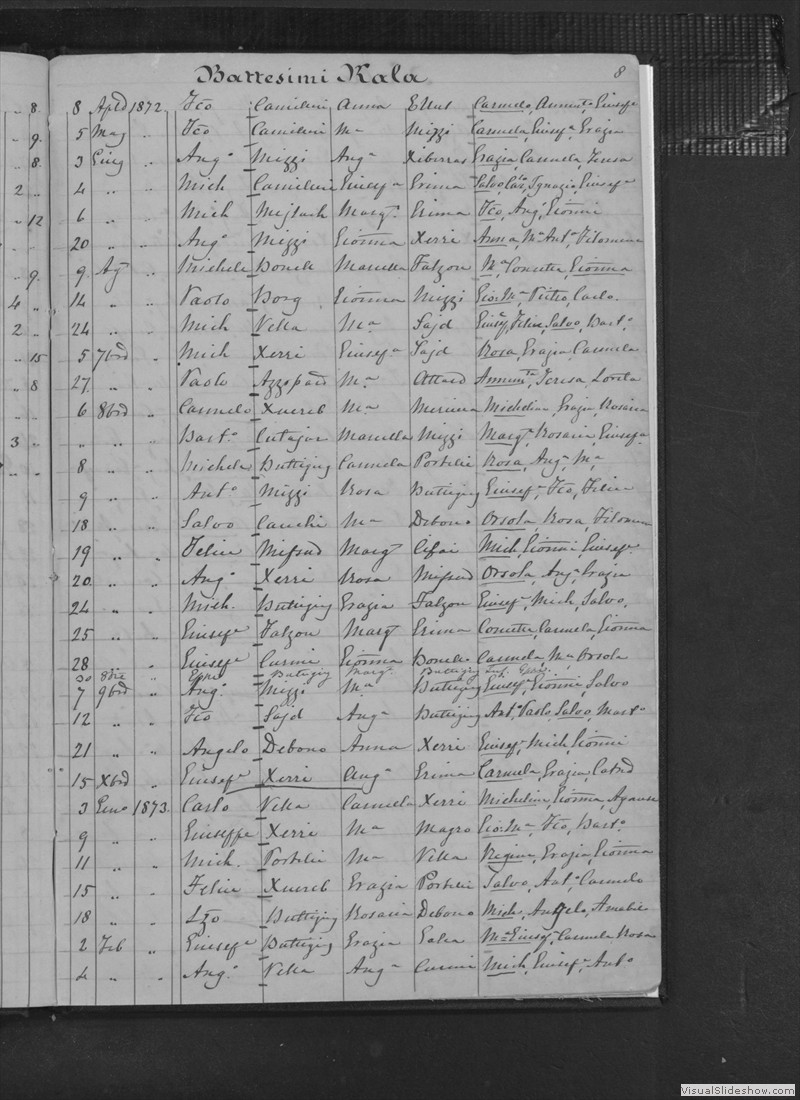 Battesimi Kala 8
8. 8 Apl 1872. Fco Camilleri Anna Ellul Carmelo, Annunta, Giuseppe
9. 5 Mag " Fco Camilleri Ma Mizzi Carmela, Giusefa, Grazia
8 3 Giug " Ango Mizzi Anga Xiberras Grazia, Carmela, Teresa
2 " 4 " " Mich Camilleri Giusefa Grima Salvo, Ignazio, Giusefa
" 12 6 " " Mich Mejlach Marga Grima Fco, Ango, Gionni
20 " " Ango Mizzi Gionna Xerri Anna, Ma Anta, Filomena
" 9. 9 Ago " Michele Bonello Marcella Falzon Ma Concetta, Gionna
4 " 14 " " Paolo Borg Gionna Mizzi Gio: Ma, Pietro, Carlo.
2 " 24 " " Mich Vella Ma Sajd Giusefe, Felice, Salvo, Barto
" 15 5 7bre " Mich Xerri Giusefa Sajd Rosa, Grazia, Carmela
" 8 27 " " Paolo Azzopard Ma Attard Annunta, Teresa, Loreta
6 8bre " Carmelo Xuereb Ma Mercieca Michelina, Grazia, Rosaria
3 " " " " Barto Cutajar Marcella Mizzi Marga, Rosaria, Giusefa
8 " " Michele Buttigieg Carmela Portelli Rosa, Anga, Ma
9 " " Anto Mizzi Rosa Buttigieg Giusefa, Fco, Felice
18 " " Salvo Cauchi Ma Debono Orsola, Rosa, Filomena
19 " " Felice Mifsud Marg Cefai Mich, Gionni, Giusefe
20 " " Ango Xerri Rosa Mifsud Orsola, Anga, Grazia
24 " " Mich. Buttigieg Grazia Falzon Giusefe, Mich, Salvo,
25 " " Giusefe Falzon Marg Grima Concetta, Carmela, Gionna
28 " Giusefe Curmi Gionna Bonello Carmela, Ma Orsola
30 8bre " Buttigieg Marga Buttigieg
7 9bre " Ango Mizzi Ma Buttigieg Giusefe, Gionni, Salvo
12 " " Fco Sajd Anga Buttigieg Anto, Paolo, Salvo, Marto
21 " " Angelo Debono Anna Xerri Giusefe, Mich, Gionni
15 Xbre " Giusefe Xerri Anga Grima Carmela, Grazia
3 Geno 1873. Carlo Vella Carmela Xerri Michelina, Gionna
9 " " Giuseppe Xerri Ma Magro Gio: Ma, Fco, Barto
11 " " Mich. Portelli Ma Vella Regina, Grazia, Gionna
15 " " Felice Xuereb Grazia Portelli Salvo, Anto, Carmelo
18 " " Lzo Buttigieg Rosaria Debono Mich, Angelo, Amabile
2 Feb " Giusefe Buttigieg Grazia Galea Ma Giusefa, Carmela, Rosa
4 " " Ango Vella Anga Curmi Mich, Giusefe, Anto
VisualSlideshow.com